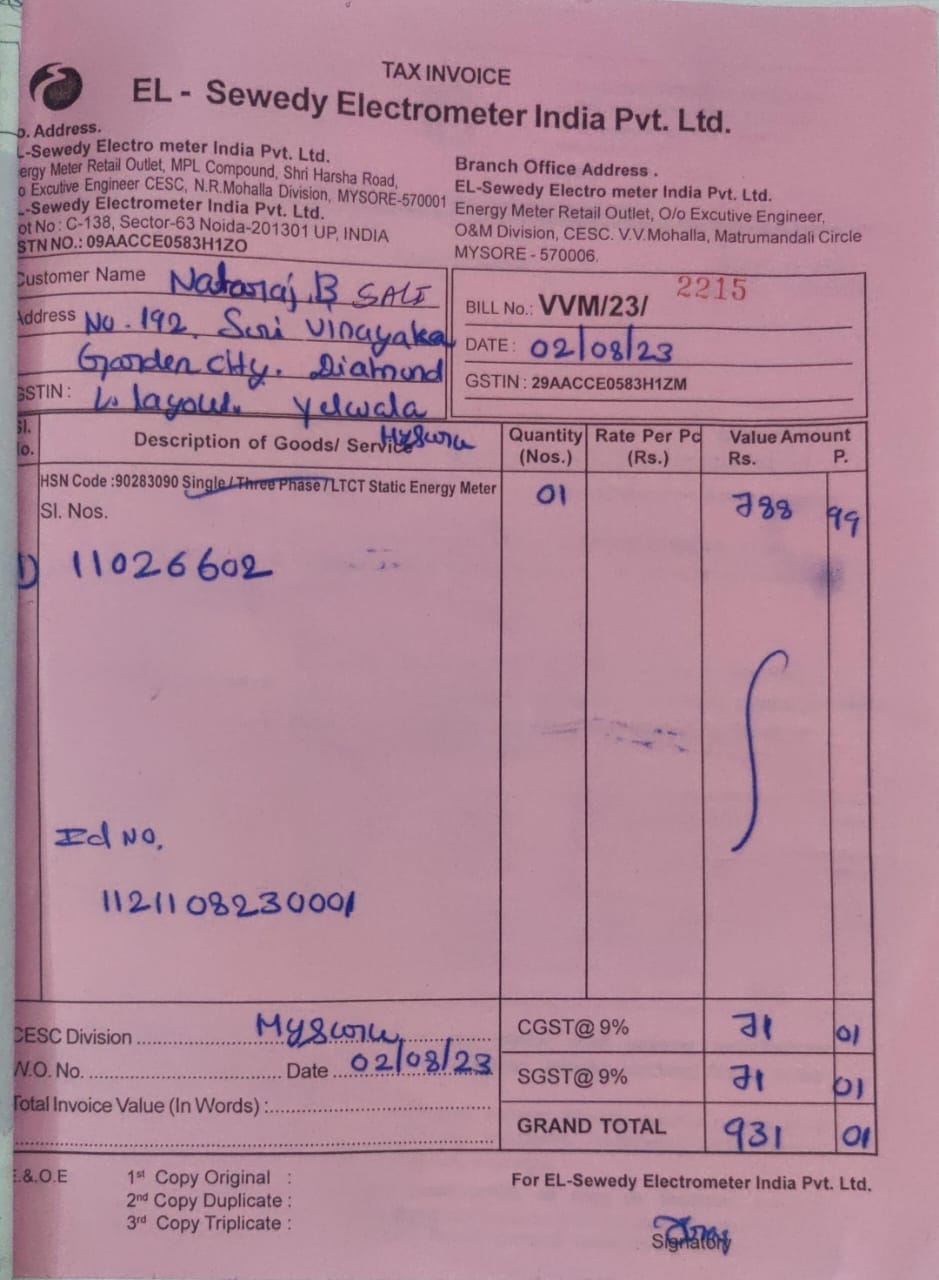 TAX INVOICE
EL - Sewedy Electrometer India Pvt. Ltd.
o. Address.
L-Sewedy Electro meter India Pvt. Ltd.
ergy Meter Retail Outlet, MPL Compound, Shri Harsha Road,
o Excutive Engineer CESC, N.R.Mohalla Division, MYSORE-570001
L-Sewedy Electrometer India Pvt. Ltd.
ot No : C-138, Sector-63 Noida-201301 UP, INDIA
STN NO.: 09AACCE0583H1ZO
Branch Office Address .
EL-Sewedy Electro meter India Pvt. Ltd.
Energy Meter Retail Outlet, O/o Excutive Engineer,
O&M Division, CESC. V.V.Mohalla, Matrumandali Circle
MYSORE - 570006.
Customer Name Nataraj.B
Address No. 192. Suri Vinayaka
Garden city. Diamond
GSTIN : layout. Yelwala
Mysore
BILL No.: VVM/23/ 2215
DATE : 02/08/23
GSTIN : 29AACCE0583H1ZM
Sl. No. Description of Goods/ Service Quantity (Nos.) Rate Per Pc (Rs.) Value Amount Rs. P.
HSN Code :90283090 Single / Three Phase / LTCT Static Energy Meter 01 788 99
Sl. Nos.
1) 11026602
Id No.
1121108230001
CESC Division Mysore CGST@ 9% 71 01
W.O. No. Date 02/08/23 SGST@ 9% 71 01
Total Invoice Value (In Words) : GRAND TOTAL 931 01
E.&.O.E
1st Copy Original :
2nd Copy Duplicate :
3rd Copy Triplicate :
For EL-Sewedy Electrometer India Pvt. Ltd.
Signatory